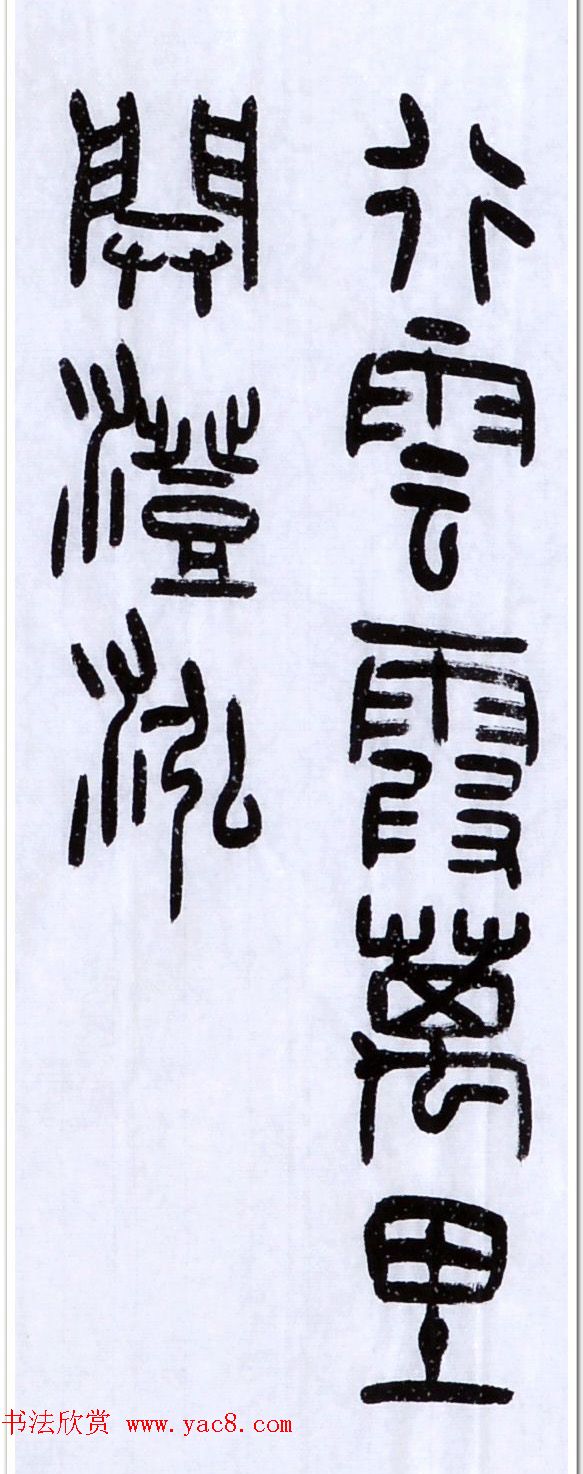 行雲霞萬里
開澄泓
书法欣赏 www.yac8.com